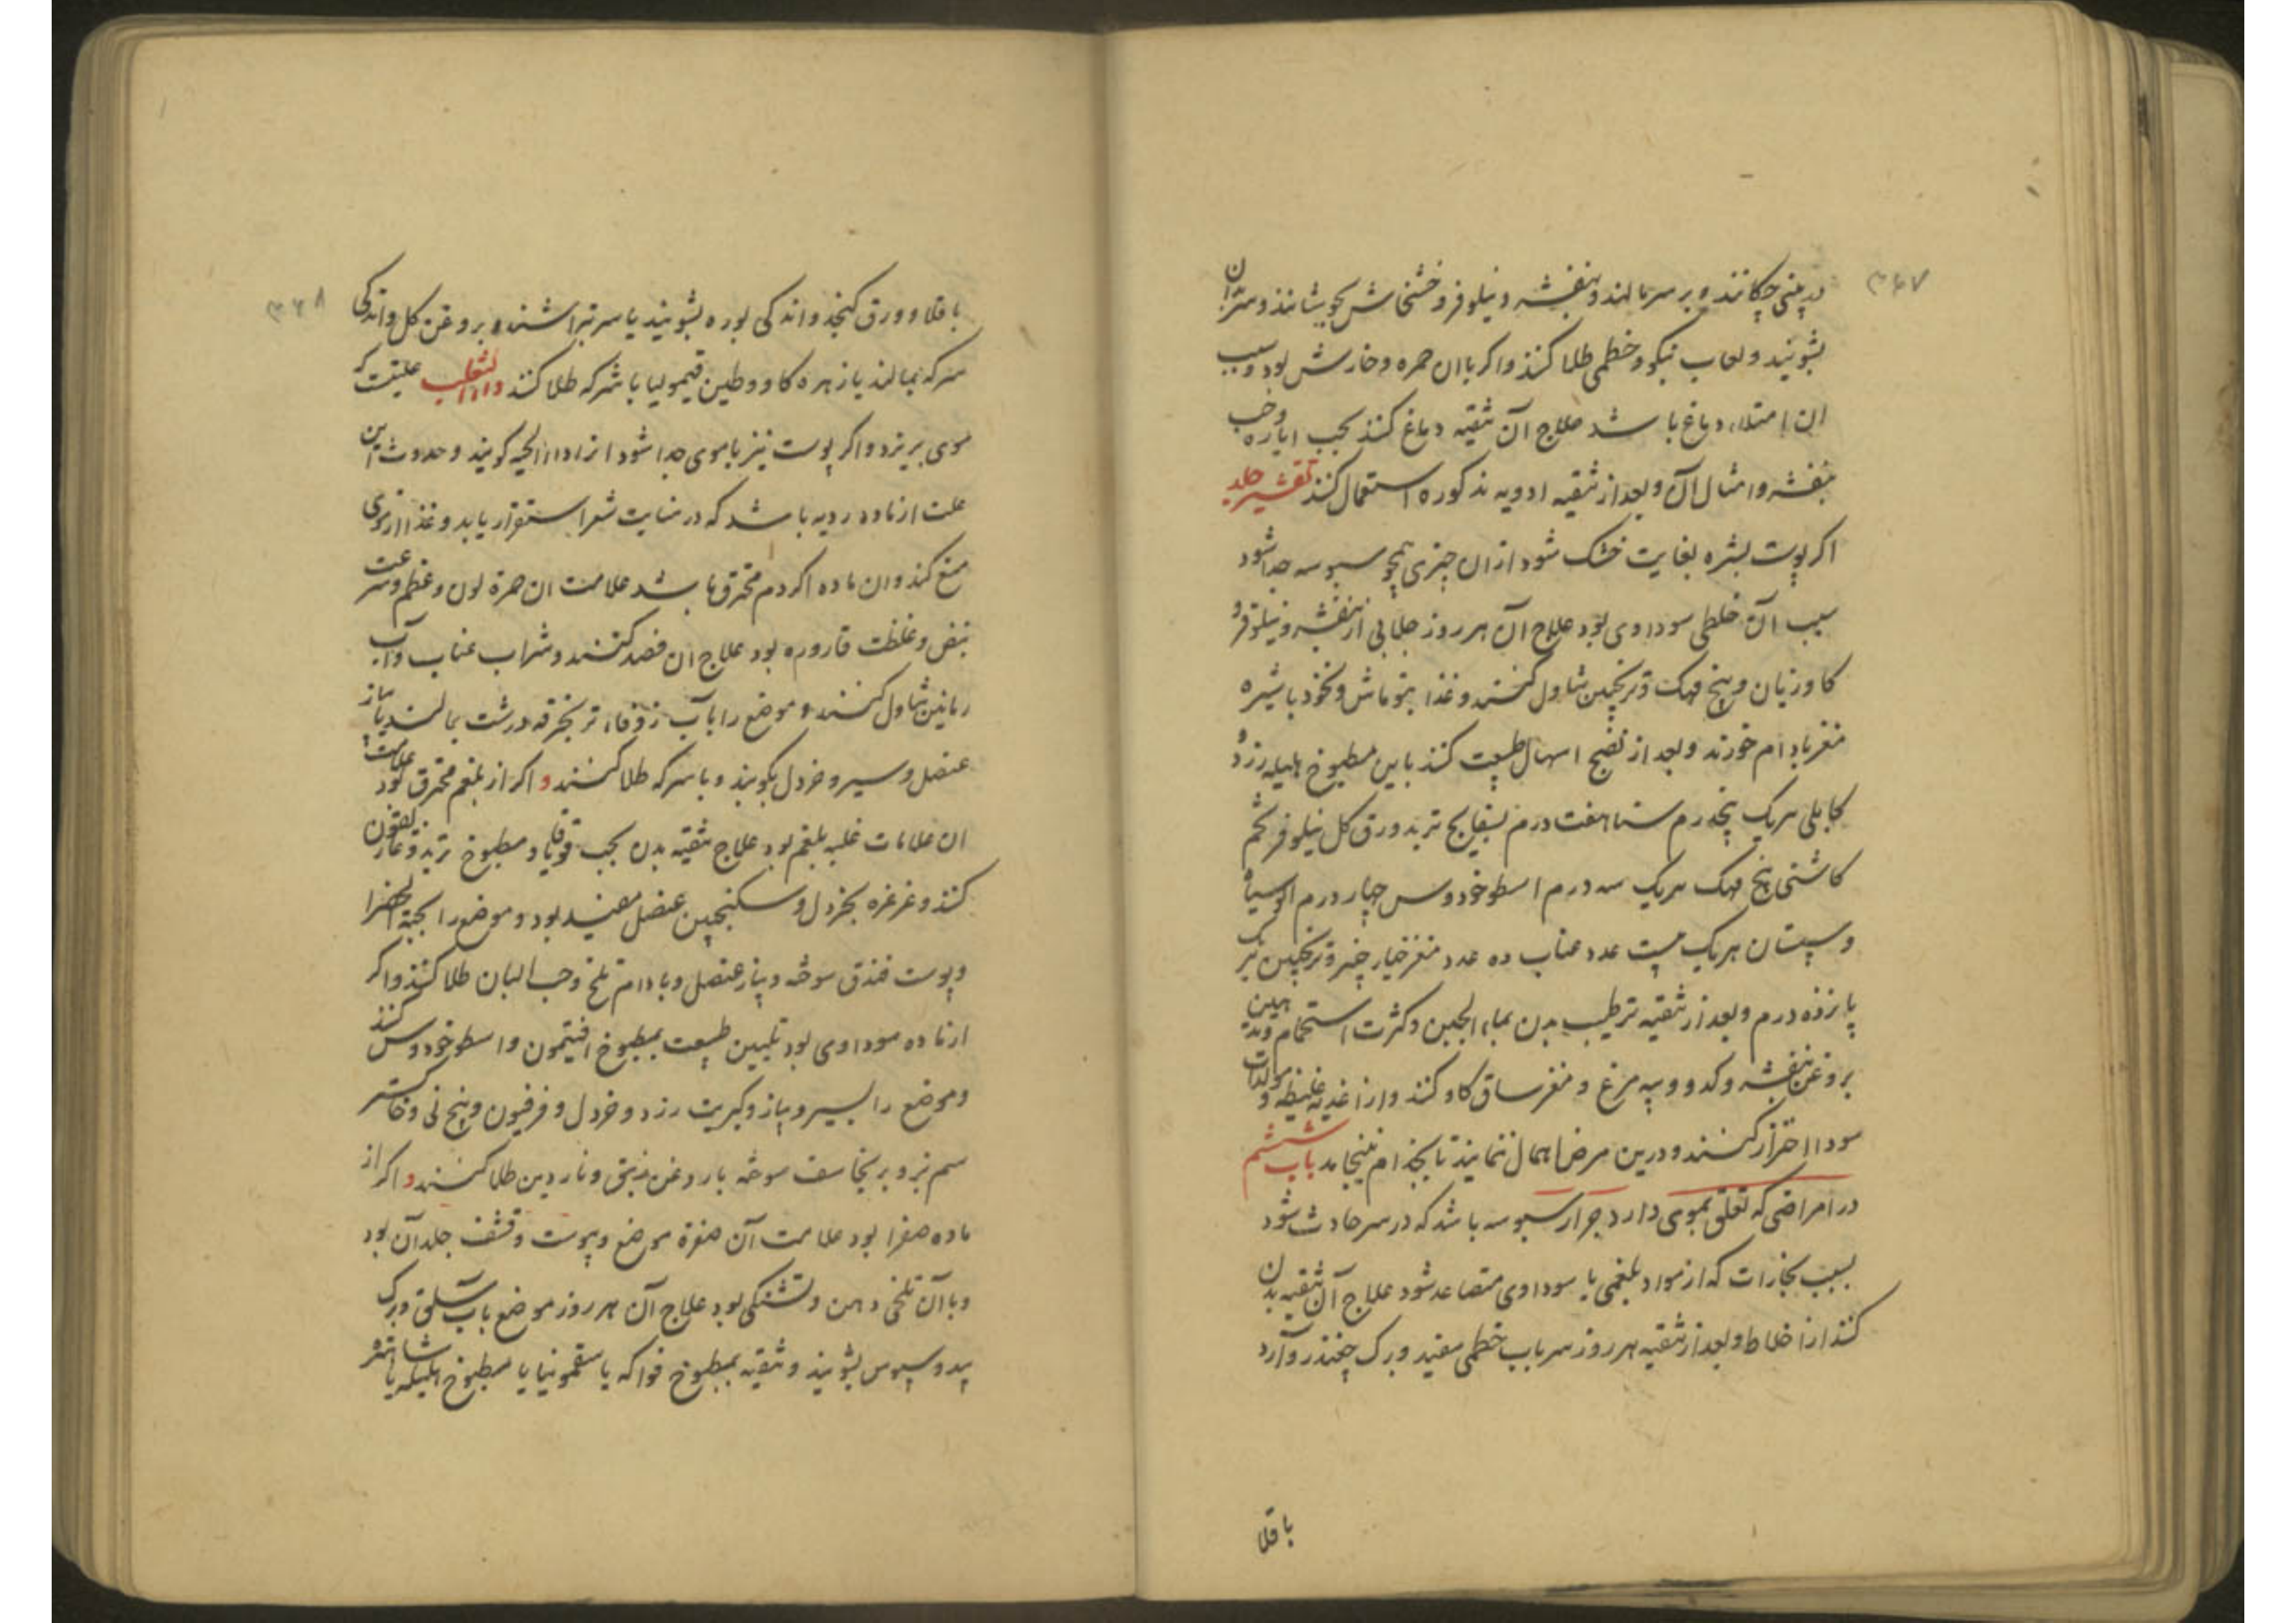 ۳۶۷
در بینی چکانند و بر سر مالند و بنفشه و نیلوفر و خشخاش بجوشانند و سر بدان
بشویند و لعاب نیکو و خطمی طلا کنند و اکر با ان حمره و خارش بود و سبب
ان امتلاء دماغ باشد علاج آن تنقیه دماغ کنند بحب ایاره و حب
بنفشه و امثال آن و بعد از تنقیه ادویه مذکوره استعمال کنند تقشیر جلد
اکر پوست بشره بغایت خشک شود از ان چیزی همچو سبوسه جدا شود
سبب آن خلطی سوداوی بود علاج آن هر روز جلابی از بنفشه و نیلوفر و
کاوزبان و بیخ مهک و ترنجبین تناول کنند و غذا بنوماش و نخود با شیره
مغز بادام خورند و بعد از نضج اسهال طبیعت کنند باین مطبوخ هلیله زرد و
کابلی هریک پنجدرم سنا هفت درم بسفایج تربد ورق کل نیلوفر تخم
کاشنی بیخ مهک هریک سه درم اسطوخودوس چهار درم الو سیاه
و سپستان هریک بیست عدد عناب ده عدد مغز خیار چنبر و ترنجبین هریک
پانزده درم و بعد از تنقیه ترطیب بدن بماء الجبن و کثرت استحمام و تدهین
بروغن بنفشه و کدو و پیه مرغ و مغز ساق کاو کنند و از اغذیه غلیظه و مولدات
سودا احتراز کنند و درین مرض اهمال ننمایند تا بجذام نینجامد باب ششم
در امراضی که تعلق بموی دارد حزاز سبوسه باشد که در سر حادث شود
بسبب بخارات که از مواد بلغمی یا سوداوی متصاعد شود علاج آن تنقیه بدن
کنند از اخلاط و بعد از تنقیه هر روز سر باب خطمی سفید و برک چغندر و آرد
باقلا
۳۶۸
باقلا و ورق کنجد و اندکی بوره بشویند یا سر بتراشند و بروغن کل و اندکی
سرکه بمالند یا زهره کاو و طین قیمولیا با سرکه طلا کنند داء الثعلب علتیست که
موی بریزد و اکر پوست نیز با موی جدا شود انرا داء الحیه کویند و حدوث این
علت از ماده ردیه باشد که در منابت شعر استقرار یابد و غذا از موی
منع کند و ان ماده اکر دم محترق باشد علامت ان حمرة لون و عظم و سرعت
نبض و غلظت قاروره بود علاج ان فصد کنند و شراب عناب و آب
رمانین تناول کنند و موضع را بآب زوفاء تر بخرقه درشت بمالند پیاز
عنصل و سیر و خردل بکوبند و با سرکه طلا کنند و اکر از بلغم محترق بود علامت
ان علامات غلبه بلغم بود علاج تنقیه بدن بحب قوقایا و مطبوخ تربد و غاریقون
کنند و غرغره بخردل و سکنجبین عنصل مفید بود و موضع را بحبة الخضرا
و پوست فندق سوخته و پیاز عنصل و بادام تلخ و حب البان طلا کنند و اکر
از ماده سوداوی بود تلیین طبیعت بمطبوخ افتیمون و اسطوخودوس کنند
و موضع را بسیر و پیاز و کبریت زرد و خردل و فرفیون و بیخ نی و خاکستر
سم بز و برنجاسف سوخته با روغن زنبق و ناردین طلا کنند و اکر از
ماده صفرا بود علامت آن صفرة موضع و یبوست و قشف جلد آن بود
و با آن تلخی دهن و تشنکی بود علاج آن هر روز موضع بآب سلق و برک
بید و سبوس بشویند و تنقیه بمطبوخ فواکه یا سقمونیا یا مطبوخ هلیله یا شاهتره